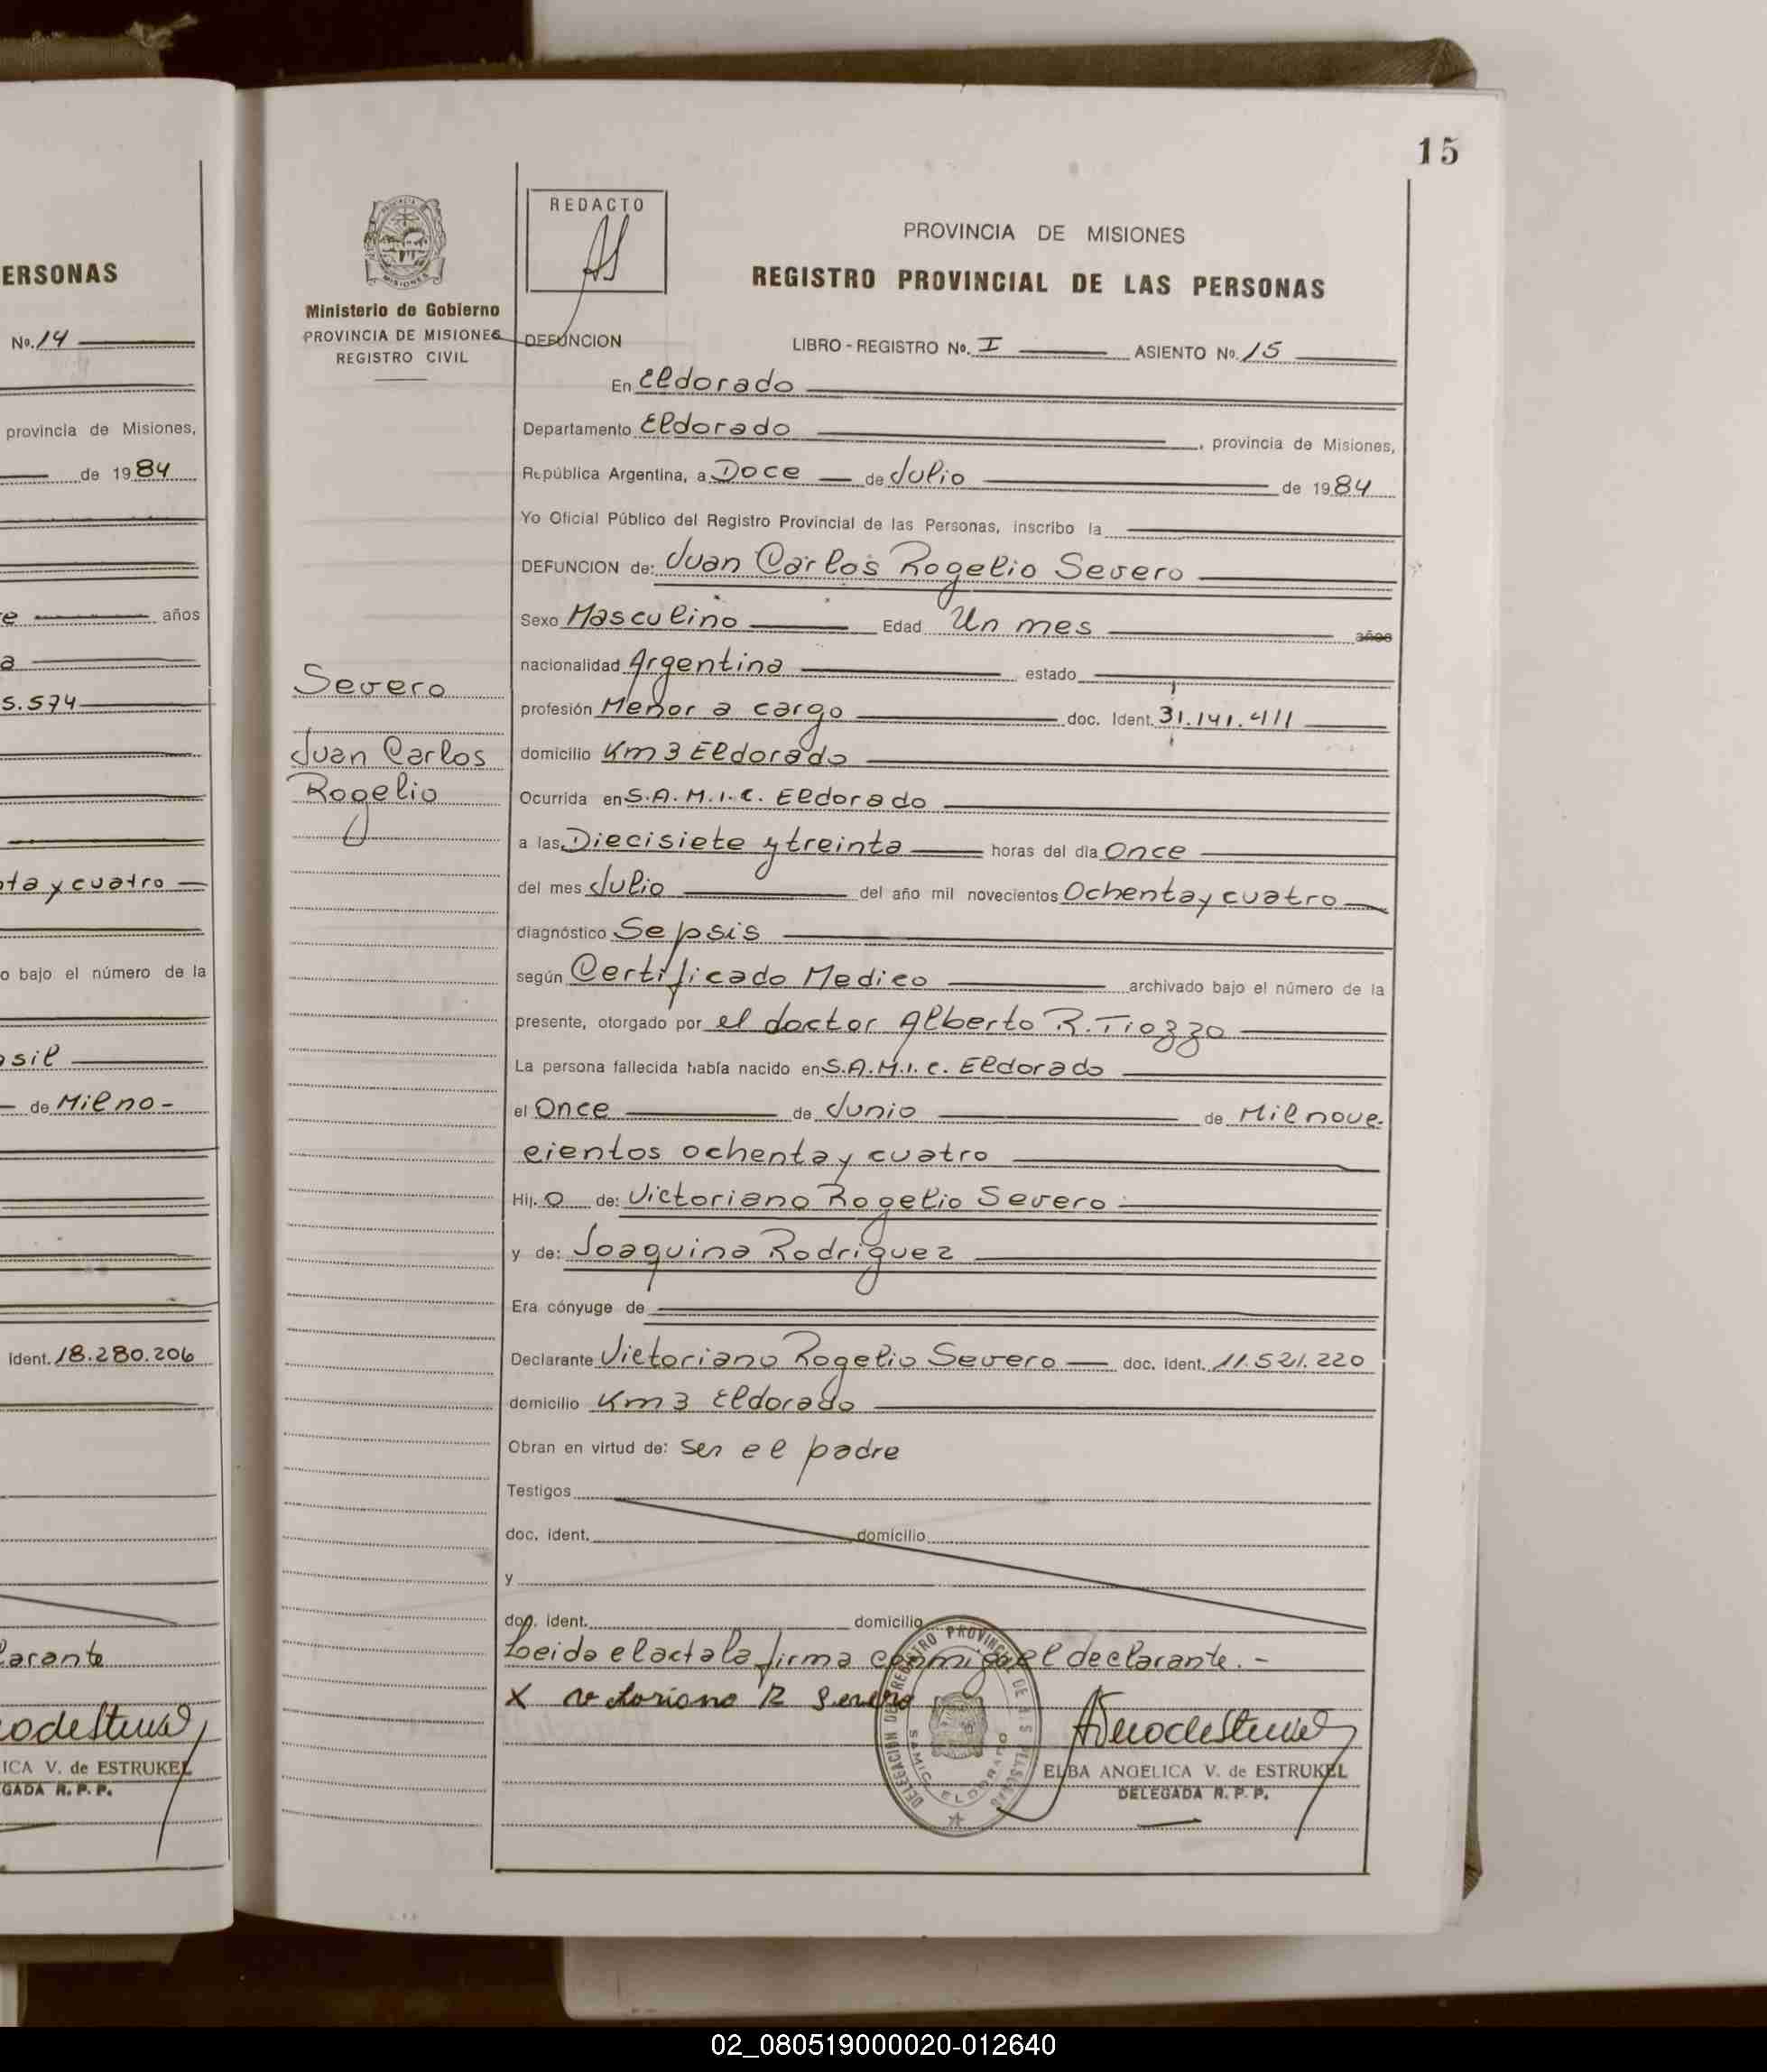 ERSONAS
No. 14
provincia de Misiones,
de 1984
años
a
5.574
ta y cuatro
o bajo el número de la
asil
de Mil no-
ident. 18.280.206
larante
ICA V. de ESTRUKEL
GADA R. P. P.
15
PROVINCIA DE MISIONES
Ministerio de Gobierno
PROVINCIA DE MISIONES
REGISTRO CIVIL
REDACTO
REGISTRO PROVINCIAL DE LAS PERSONAS
DEFUNCION LIBRO - REGISTRO No. I ASIENTO No. 15
En Eldorado
Departamento Eldorado, provincia de Misiones,
República Argentina, a Doce de Julio de 1984
Yo Oficial Público del Registro Provincial de las Personas, inscribo la
DEFUNCION de: Juan Carlos Rogelio Severo
Sexo Masculino Edad Un mes años
nacionalidad Argentina estado
profesión Menor a cargo doc. Ident. 31.141.411
domicilio Km 3 Eldorado
Ocurrida en S.A.M.I.C. Eldorado
a las Diecisiete y treinta horas del día Once
del mes Julio del año mil novecientos Ochenta y cuatro
diagnóstico Sepsis
según Certificado Medico archivado bajo el número de la
presente, otorgado por el doctor Alberto R. Tiozzo
La persona fallecida había nacido en S.A.M.I.C. Eldorado
el Once de Junio de Mil nove.
cientos ochenta y cuatro
Hij. o de: Victoriano Rogelio Severo
y de: Joaquina Rodriguez
Era cónyuge de
Declarante Victoriano Rogelio Severo doc. ident. 11.521.220
domicilio Km 3 Eldorado
Obran en virtud de: ser el padre
Testigos
doc. ident. domicilio
y
doc. ident. domicilio
Leida el acta la firma conmigo el declarante.-
X victoriano R Severo
DELEGACION DE REGISTRO PROVINCIAL DE LAS PERSONAS
SAMIC ELDORADO
ELBA ANGELICA V. de ESTRUKEL
DELEGADA R. P. P.
Severo
Juan Carlos
Rogelio
02_080519000020-012640